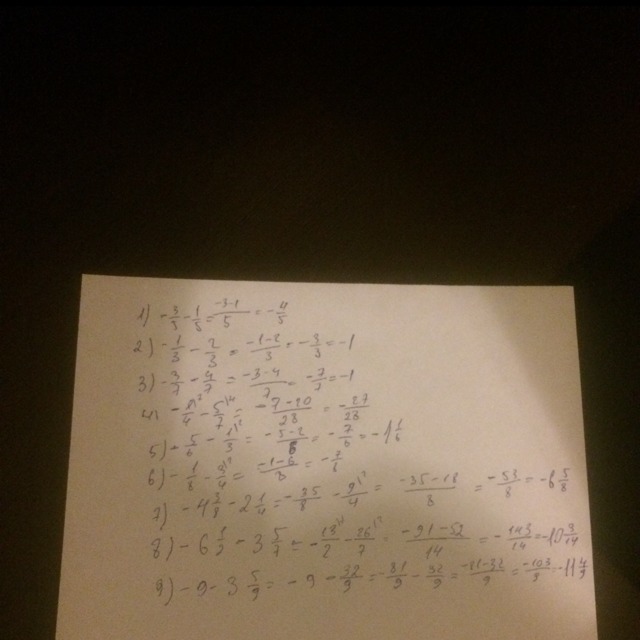 1) -3/5 - 1/5 = -3-1/5 = -4/5
2) -1/3 - 2/3 = -1-2/3 = -3/3 = -1
3) -3/7 - 4/7 = -3-4/7 = -7/7 = -1
= -7-20/28 = -27/28
5) -5/6 - 1/3 = -5-2/6 = -7/6 = -1 1/6
6) -1/8 = -1-6/8 = -7/8
7) -4 3/8 - 2 1/4 = -35/8 - 9/4 = -35-18/8 = -53/8 = -6 5/8
8) -6 1/2 - 3 5/7 = -13/2 - 26/7 = -91-52/14 = -143/14 = -10 3/14
9) -9 - 3 5/9 = -9 - 32/9 = -81/9 - 32/9 = -81-32/9 = -103/9 -11 4/9